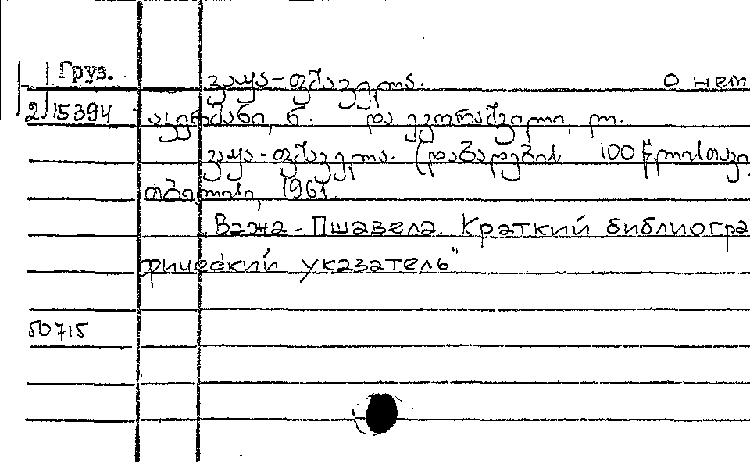 Груз. ვაჟა-ფშაველა. о нем
2/15394 ნ. და ლ.
ვაჟა-ფშაველა. (დაბადების 100 წლისთავი
თბილისი, 1961.
Важа-Пшавела. Краткий библиогра
фический указатель"
50715